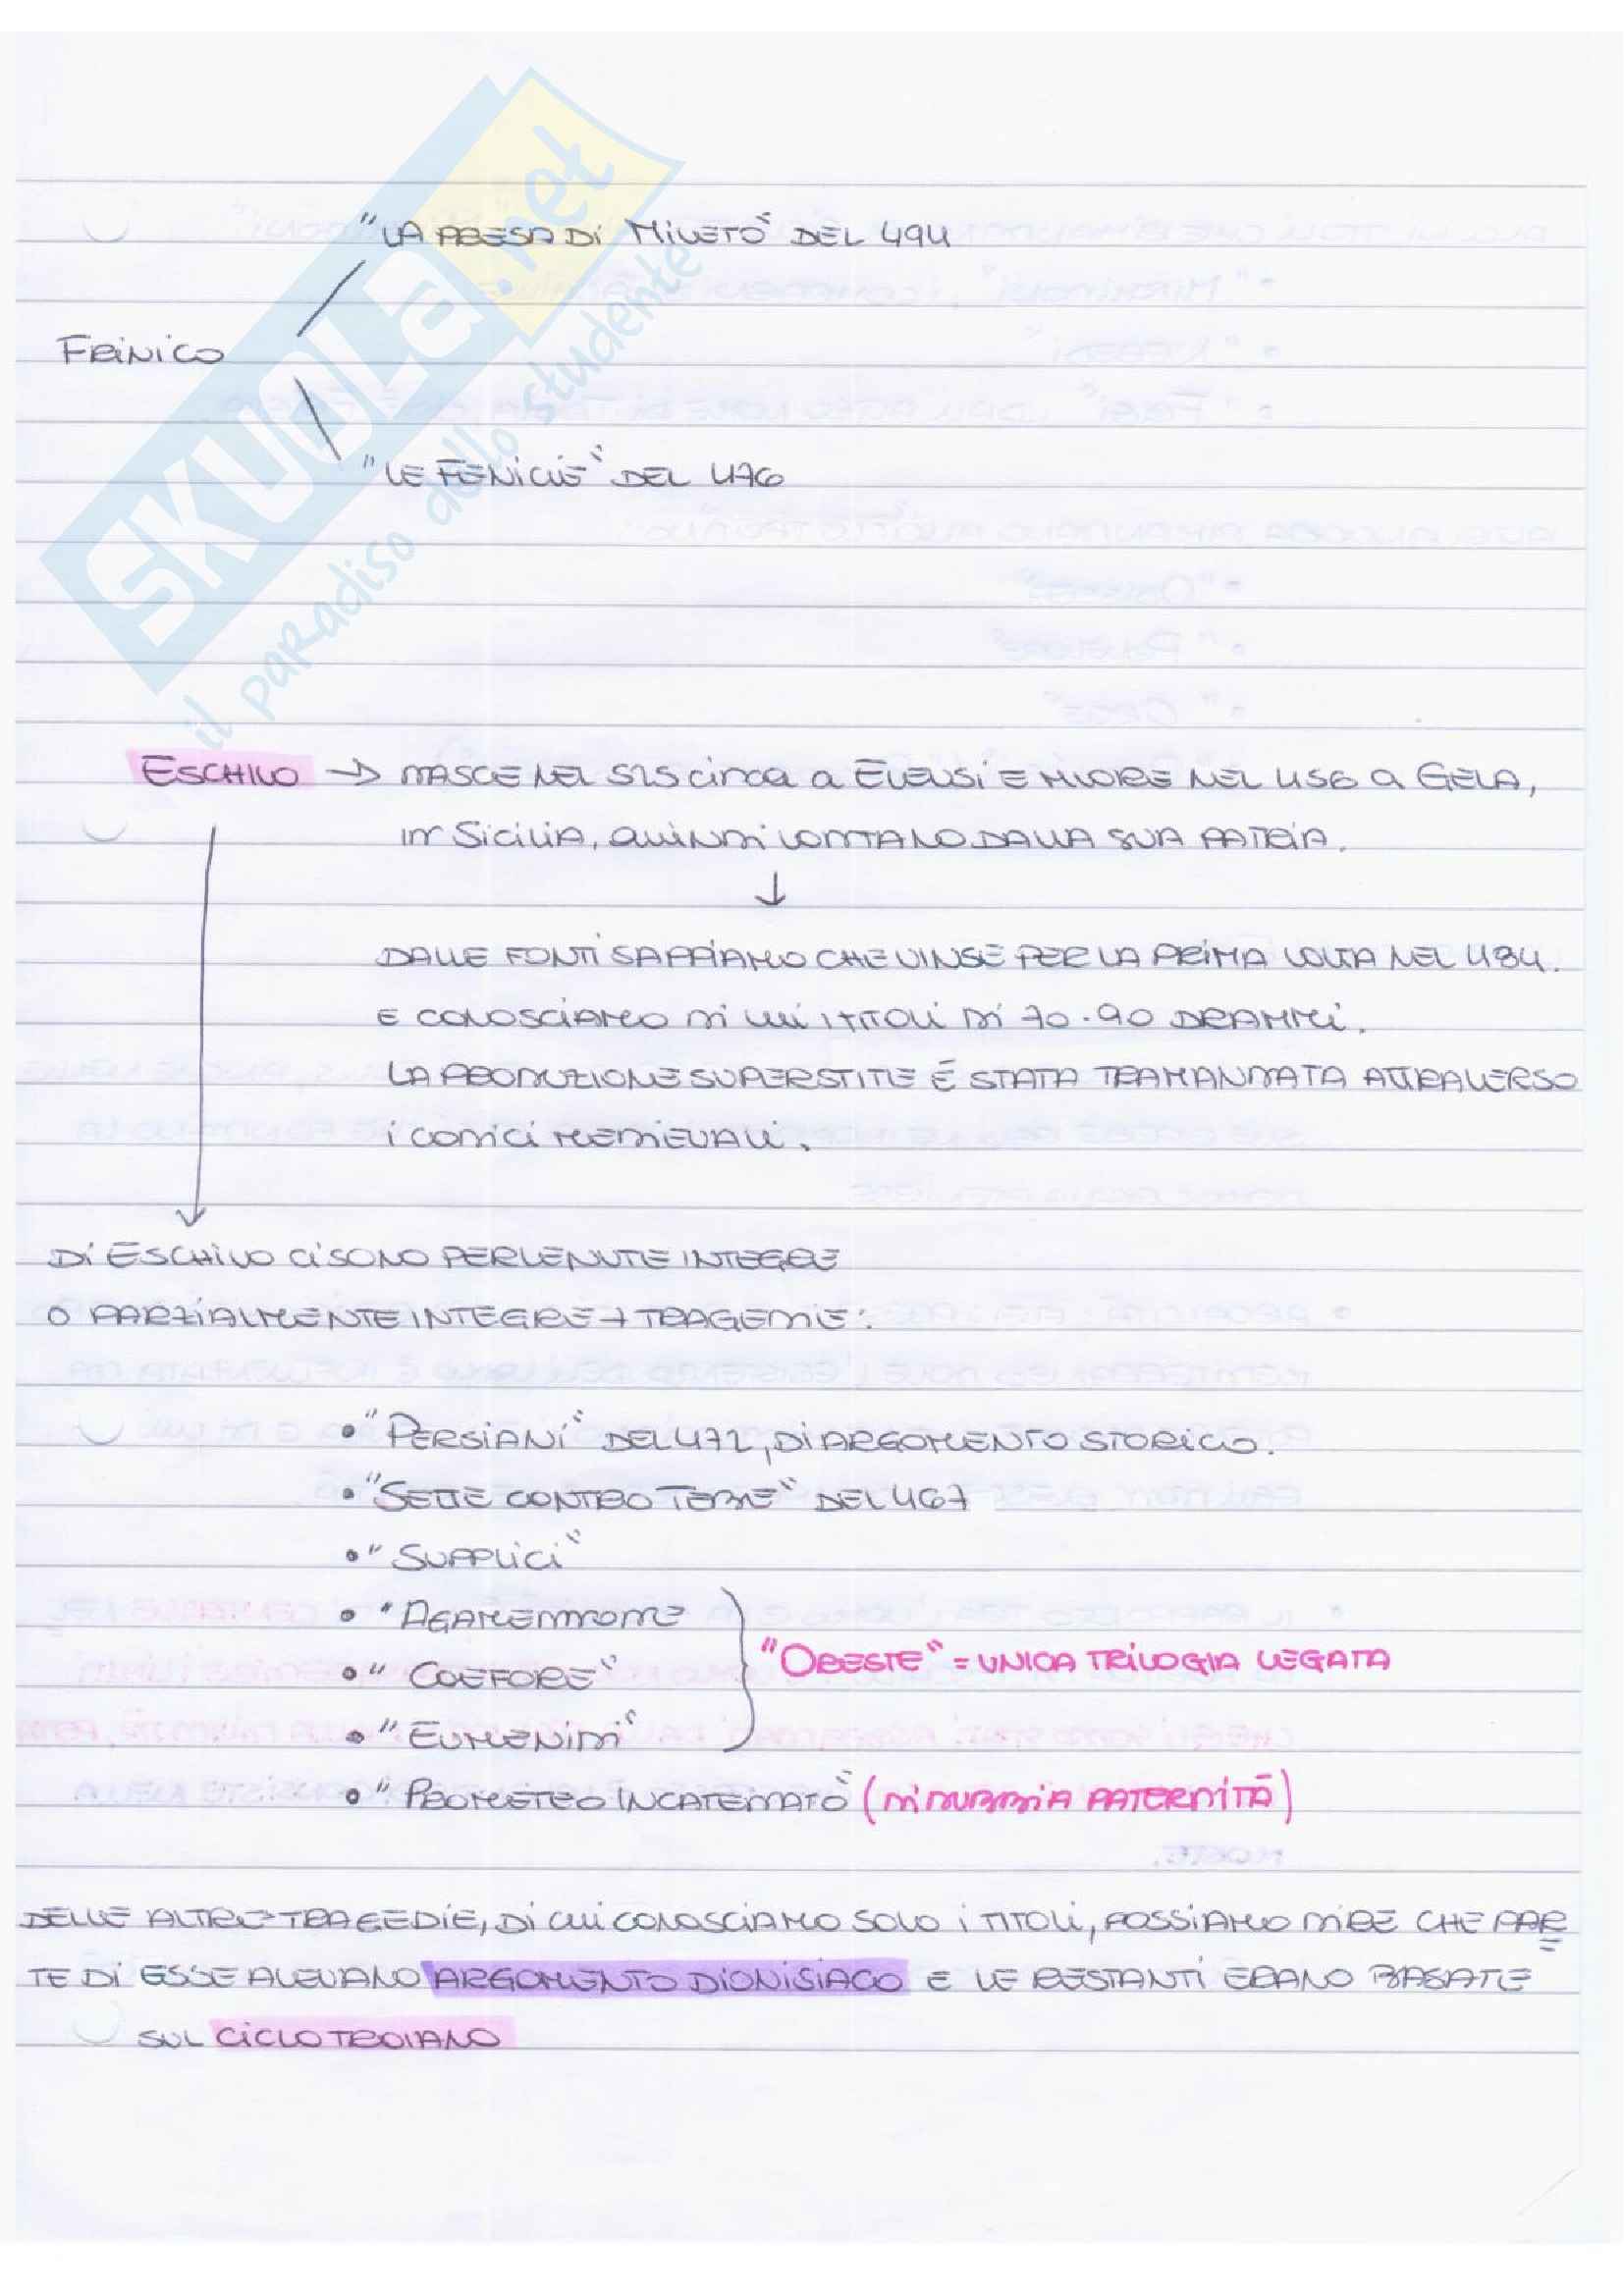 "LA PRESA DI MILETO" DEL 494
FRINICO
"LE FENICIE" DEL 476
SKUOLA.net
il paradiso dello studente
ESCHILO → NASCE NEL 525 circa a ELEUSI E MUORE NEL 456 a GELA,
in SICILIA, QUINDI LONTANO DALLA SUA PATRIA.
↓
DALLE FONTI SAPPIAMO CHE VINSE PER LA PRIMA VOLTA NEL 484.
E CONOSCIAMO DI LUI I TITOLI DI 70-90 DRAMMI.
LA PRODUZIONE SUPERSTITE É STATA TRAMANDATA ATTRAVERSO
i CODICI MEDIEVALI.
DI ESCHILO CI SONO PERVENUTE INTEGRE
O PARZIALMENTE INTEGRE 7 TRAGEDIE:
• "PERSIANI" DEL 472, DI ARGOMENTO STORICO.
• "SETTE CONTRO TEBE" DEL 467
• "SUPPLICI"
• "AGAMENNONE
• "COEFORE"
• "EUMENIDI"
"ORESTE" = UNICA TRILOGIA LEGATA
• "PROMETEO INCATENATO" (DI DUBBIA PATERNITÀ)
DELLE ALTRE TRAGEDIE, DI CUI CONOSCIAMO SOLO i TITOLI, POSSIAMO DIRE CHE PAR
TE DI ESSE AVEVANO ARGOMENTO DIONISIACO E LE RESTANTI ERANO BASATE
SUL CICLO TROIANO